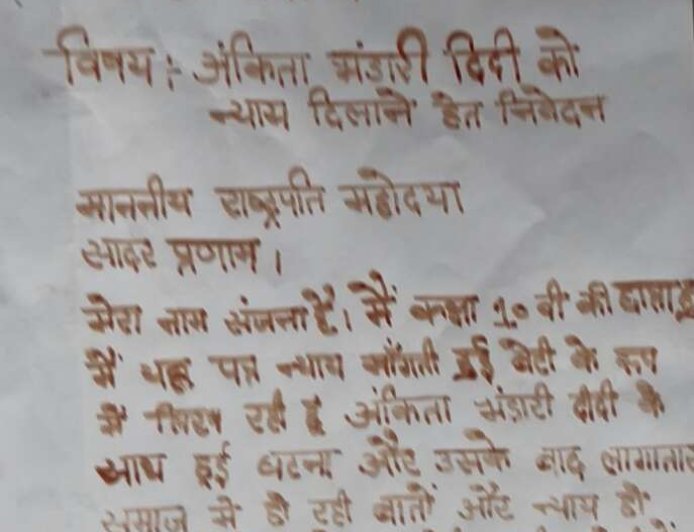 विषय :- अंकिता भंडारी दिदी को
न्याय दिलाने हेत निवेदन
माननीय राष्ट्रपति महोदया
सादर प्रणाम ।
मेरा नाम संजना है। मैं कक्षा 10 वी की छात्रा हूँ
मैं यह पत्र न्याय माँगती हुई बेटी के रूप
में लिख रही हूँ अंकिता भंडारी दीदी के
साथ हुई घटना और उसके बाद लागातार
समाज में हो रही बातों और न्याय हो